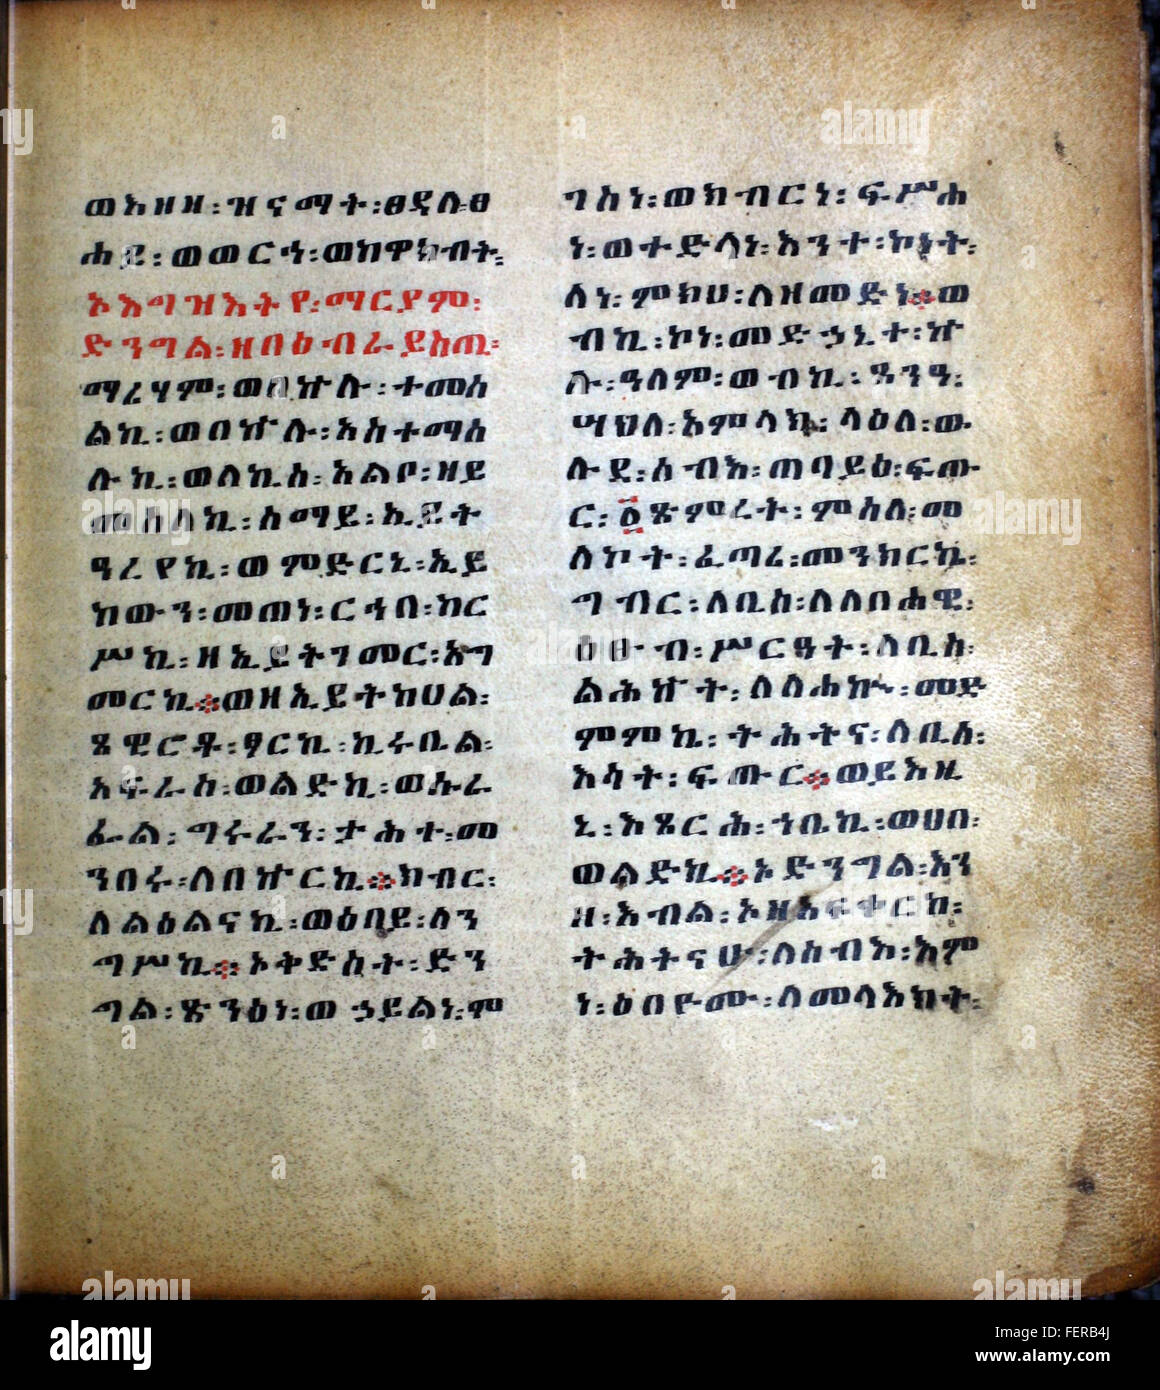 ወእዘዘ፡ዝናማት፡ፀዳሉ፡ፀ
ሐይ፡ወወርኅ፡ወከዋክብት፡
ኦእግዝእትየ፡ማርያም፡
ድንግል፡ዘበዕብራይስጢ፡
ማረሃም፡ወበኵሉ፡ተመስ
ልኪ፡ወበኵሉ፡አስተማስ
ሉኪ፡ወለኪሰ፡አልቦ፡ዘይ
መስለኪ፡ሰማይ፡ኢይት
ዓረየኪ፡ወምድርኒ፡ኢይ
ከውን፡መጠነ፡ርኅበ፡ከር
ሥኪ፡ዘኢይትገመር፡አግ
መርኪ፡፡ወዘኢይትከሀል፡
ጾዊሮቶ፡ፆርኪ፡ኪሩቤል፡
አፍራስ፡ወልድኪ፡ወሱራ
ፌል፡ግሩራን፡ታሕተ፡መ
ንበሩ፡ለበኵርኪ፡፡ክብር፡
ለልዕልናኪ፡ወዕበይ፡ለን
ግሥኪ፡፡ኦቅድስት፡ድን
ግል፡ጽንዕነ፡ወኃይልነ፡ም
ገስነ፡ወክብርነ፡ፍሥሐ
ነ፡ወተድላነ፡አንተ፡ኮነት፡
ለነ፡ምክሀ፡ለዘመድነ፡፡ወ
ብኪ፡ኮነ፡መድኃኒተ፡ኵ
ሉ፡ዓለም፡ወብኪ፡ዔንዓ፡
ሣህለ፡አምላክ፡ላዕለ፡ው
ሉደ፡ሰብእ፡ጠባይዕ፡ፍጡ
ር፡፩ጽምረት፡ምስለ፡መ
ለኮት፡ፈጣሪ፡መንክርኬ፡
ግብር፡ለቢሰ፡ለለበሐዊ፡
ዕፁብ፡ሥርዓት፡ለቢሰ፡
ልሕኵት፡ለለሐኳ፡መድ
ምምኬ፡ትሕትና፡ለቢሰ፡
እሳት፡ፍጡር፡፡ወይእዜ
ኒ፡እጼርሕ፡ኀቤኪ፡ወሀበ፡
ወልድኪ፡፡ኦድንግል፡እን
ዘ፡እብል፡ኦዘአፍቀርከ፡
ትሕትናሁ፡ለሰብእ፡እም
ነ፡ዕበዮሙ፡ለመላእክት፡
alamy
Image ID: FERB4J
www.alamy.com